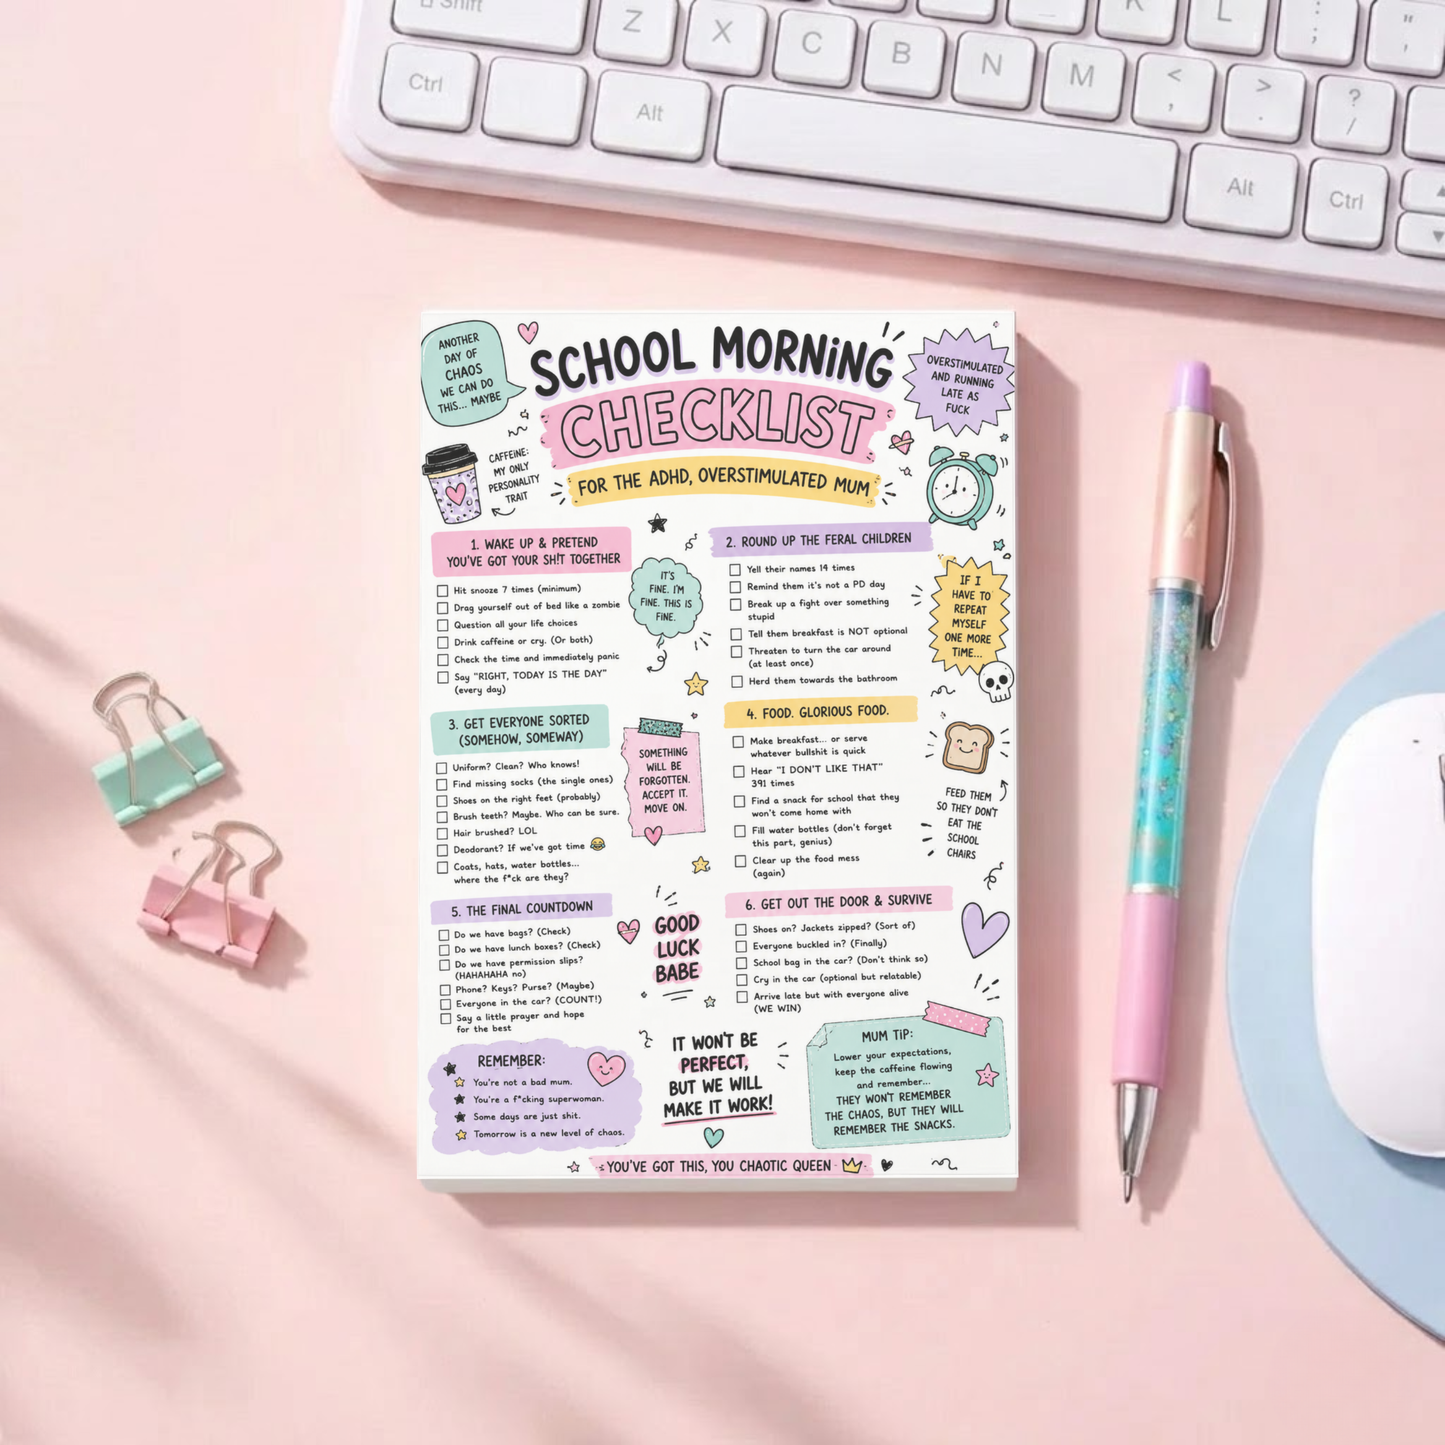 Shift
Z X C B N M K L : ; " '
Ctrl Alt < , > . ? / Alt Ctrl
ANOTHER
DAY OF
CHAOS
WE CAN DO
THIS... MAYBE
SCHOOL MORNING
CHECKLIST
FOR THE ADHD, OVERSTIMULATED MUM
OVERSTIMULATED
AND RUNNING
LATE AS
FUCK
CAFFEINE:
MY ONLY
PERSONALITY
TRAIT
1. WAKE UP & PRETEND
YOU'VE GOT YOUR SH!T TOGETHER
Hit snooze 7 times (minimum)
Drag yourself out of bed like a zombie
Question all your life choices
Drink caffeine or cry. (Or both)
Check the time and immediately panic
Say "RIGHT, TODAY IS THE DAY"
(every day)
IT'S
FINE. I'M
FINE. THIS IS
FINE.
2. ROUND UP THE FERAL CHILDREN
Yell their names 14 times
Remind them it's not a PD day
Break up a fight over something
stupid
Tell them breakfast is NOT optional
Threaten to turn the car around
(at least once)
Herd them towards the bathroom
IF I
HAVE TO
REPEAT
MYSELF
ONE MORE
TIME...
3. GET EVERYONE SORTED
(SOMEHOW, SOMEWAY)
Uniform? Clean? Who knows!
Find missing socks (the single ones)
Shoes on the right feet (probably)
Brush teeth? Maybe. Who can be sure.
Hair brushed? LOL
Deodorant? If we've got time 😂
Coats, hats, water bottles...
where the f*ck are they?
SOMETHING
WILL BE
FORGOTTEN.
ACCEPT IT.
MOVE ON.
4. FOOD. GLORIOUS FOOD.
Make breakfast... or serve
whatever bullshit is quick
Hear "I DON'T LIKE THAT"
391 times
Find a snack for school that they
won't come home with
Fill water bottles (don't forget
this part, genius)
Clear up the food mess
(again)
FEED THEM
SO THEY DON'T
EAT THE
SCHOOL
CHAIRS
5. THE FINAL COUNTDOWN
Do we have bags? (Check)
Do we have lunch boxes? (Check)
Do we have permission slips?
(HAHAHAHA no)
Phone? Keys? Purse? (Maybe)
Everyone in the car? (COUNT!)
Say a little prayer and hope
for the best
GOOD
LUCK
BABE
6. GET OUT THE DOOR & SURVIVE
Shoes on? Jackets zipped? (Sort of)
Everyone buckled in? (Finally)
School bag in the car? (Don't think so)
Cry in the car (optional but relatable)
Arrive late but with everyone alive
(WE WIN)
REMEMBER:
You're not a bad mum.
You're a f*cking superwoman.
Some days are just shit.
Tomorrow is a new level of chaos.
IT WON'T BE
PERFECT,
BUT WE WILL
MAKE IT WORK!
MUM TIP:
Lower your expectations,
keep the caffeine flowing
and remember...
THEY WON'T REMEMBER
THE CHAOS, BUT THEY WILL
REMEMBER THE SNACKS.
YOU'VE GOT THIS, YOU CHAOTIC QUEEN